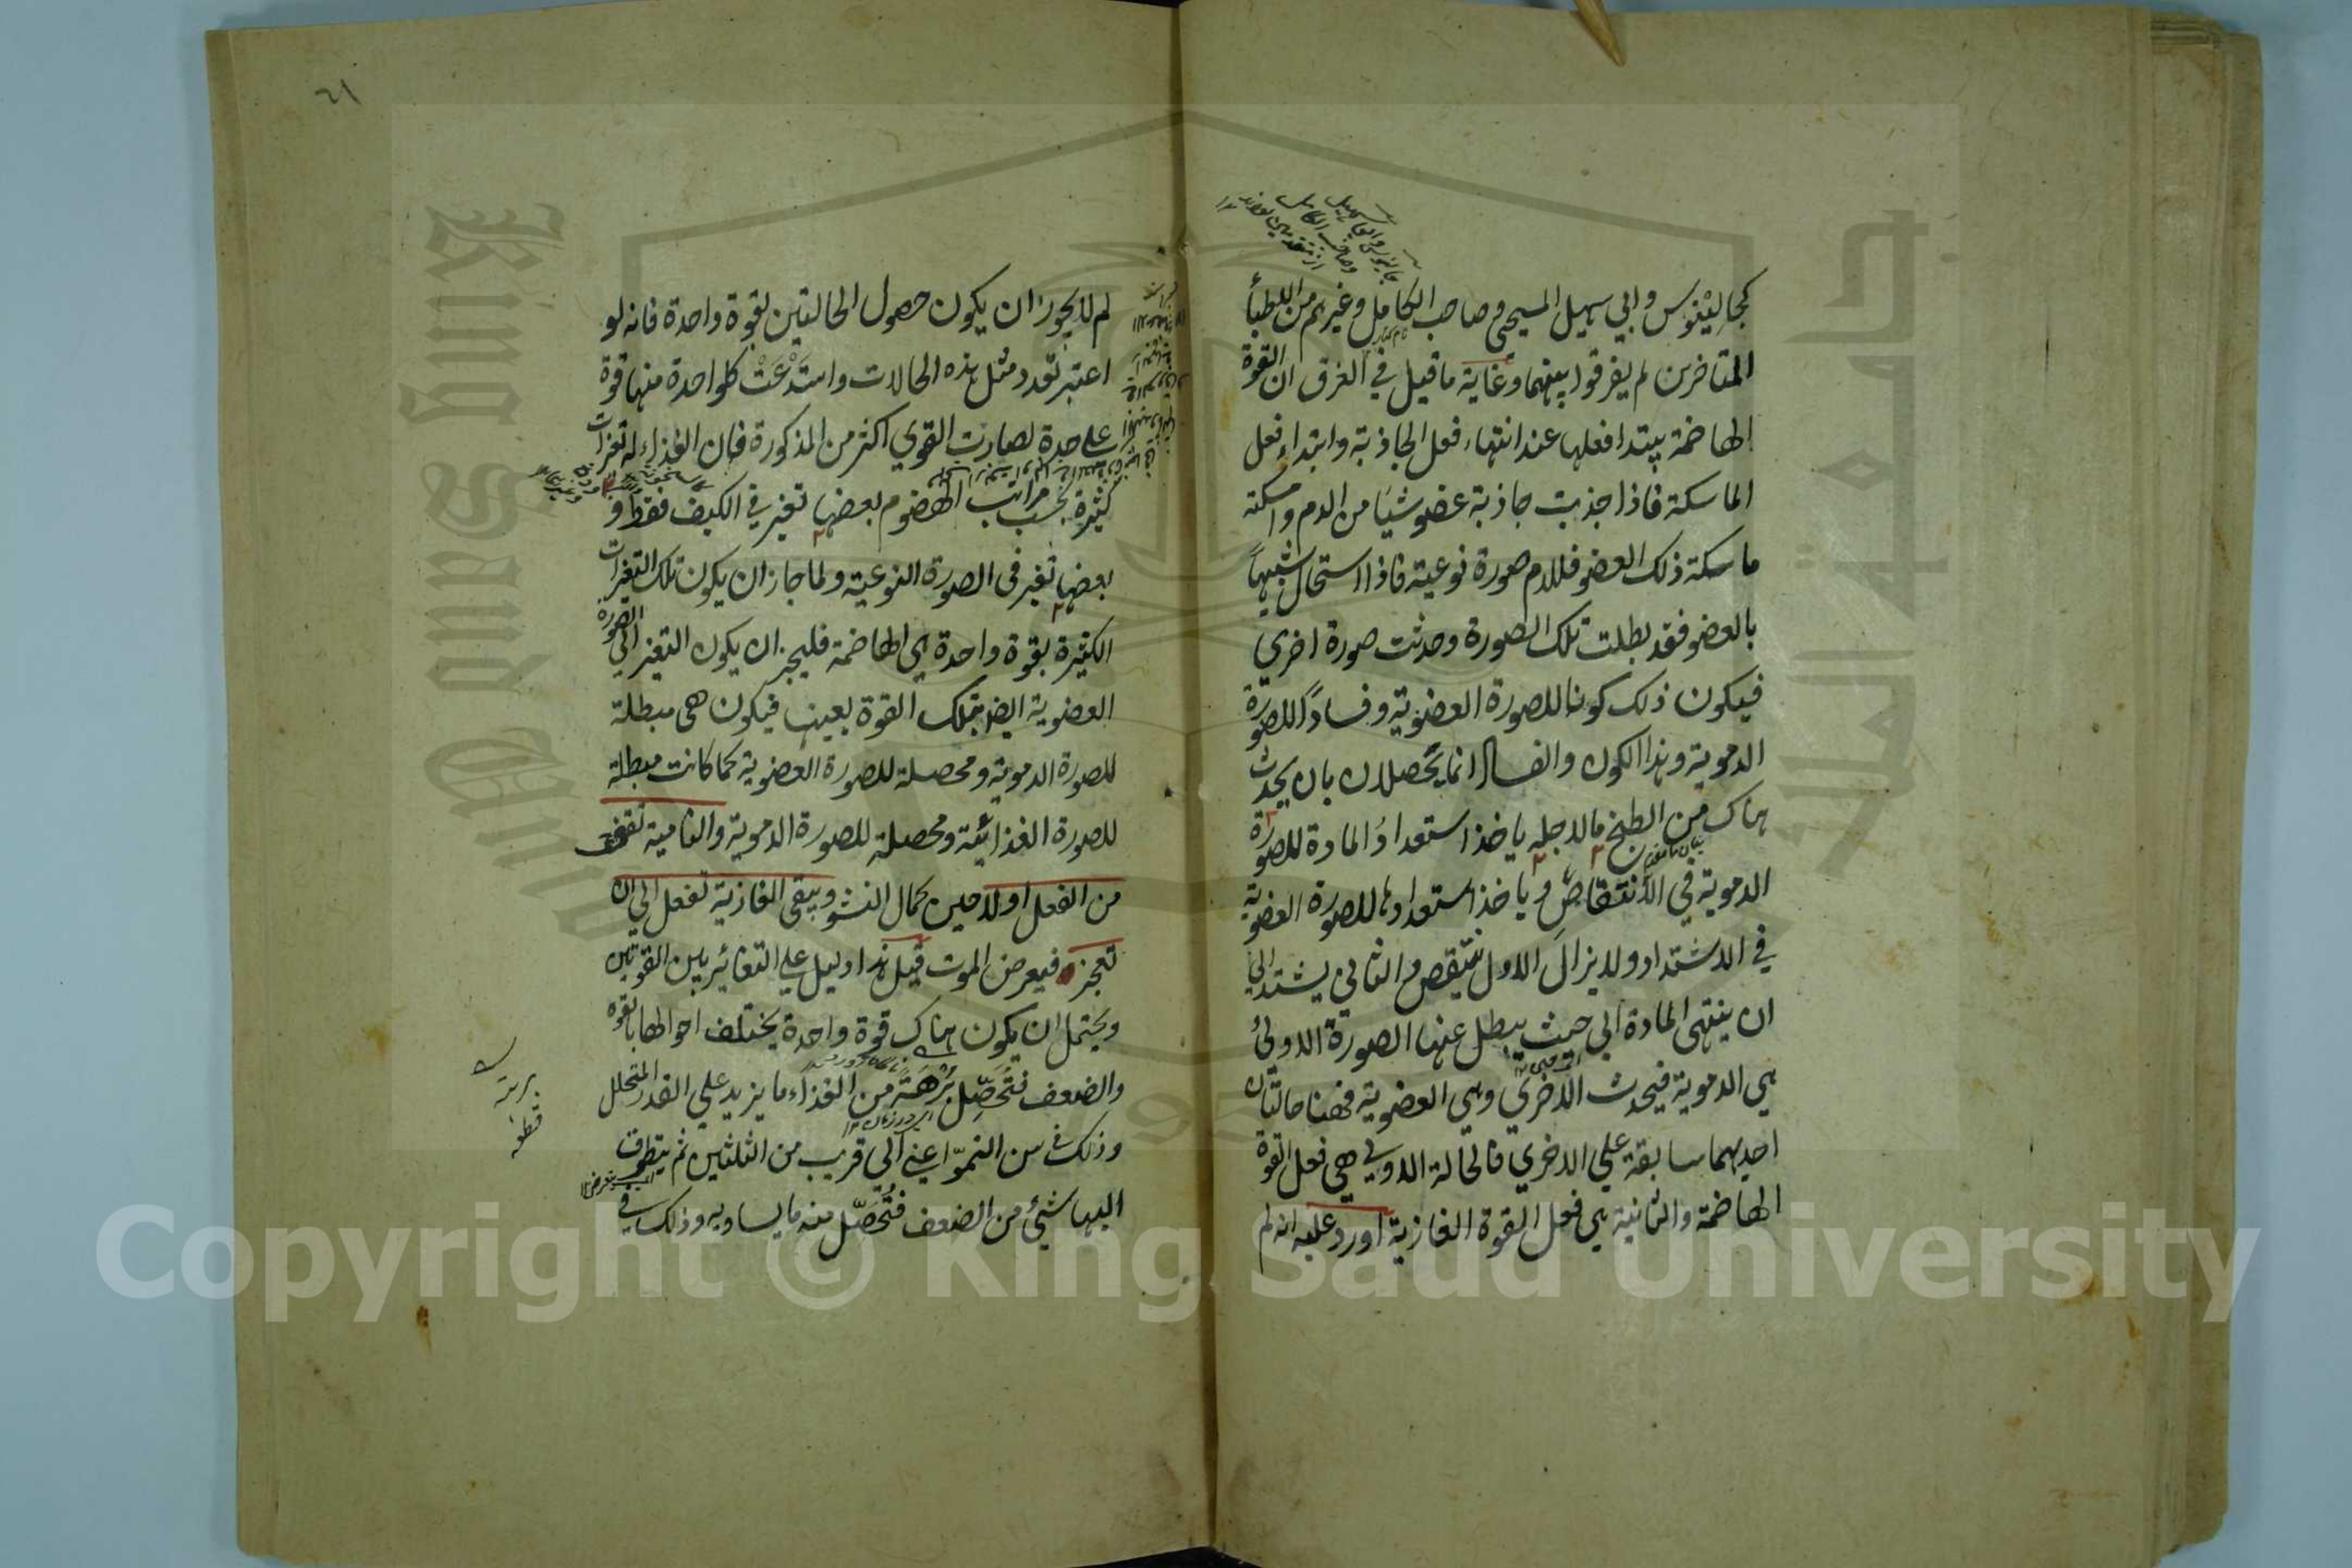 كجالينوس وابي سهيل المسيحي وصاحب الكامل وغيرهم من الاطبأ
المتاخرين لم يفرقوا بينهما وغاية ما قيل في الفرق ان القوة
الهاضمة يبتدا فعلها عند انتهاء فعل الجاذبة وابتداء فعل
الماسكة فاذا جذبت جاذبة عضو شيئا من الدم وامسكته
ماسكة ذلك العضو فللدم صورة نوعية فاذا استحال شبيها
بالعضو فقد بطلت تلك الصورة وحدثت صورة اخري
فيكون ذلك كونا للصورة العضوية وفسادا للصورة
الدموية وهذا الكون والفساد انما يحصلان بان يحدث
هناك من الطبخ ما لاجله ياخذ استعداد المادة للصورة
الدموية في الانتقاص وياخذ استعدادها للصورة العضوية
في الاشتداد ولا يزال الاول ينتقص والثاني يشتد الي
ان ينتهي المادة الي حيث يبطل عنها الصورة الاولي
هي الدموية فيحدث الاخري وهي العضوية فههنا حالتان
احديهما سابقة علي الاخري فالحالة الاولي هي فعل القوة
الهاضمة والثانية هي فعل القوة الغاذية اورد عليه انه لم
٢١
لم لا يجوز ان يكون حصول الحالتين بقوة واحدة فانه لو
اعتبر تعدد مثل هذه الحالات واستدعت كلواحدة منها قوة
علي حدة لصارت القوي اكثر من المذكورة فان الغذاء له تغيرات
كثيرة بحسب مراتب الهضوم بعضها تغير في الكيف فقط و
بعضها تغير في الصورة النوعية ولما جاز ان يكون تلك التغيرات
الكثيرة بقوة واحدة هي الهاضمة فليجز ان يكون التغير الي الصورة
العضوية ايضا بتلك القوة بعينها فيكون هي مبطلة
للصورة الدموية ومحصلة للصورة العضوية كما كانت مبطلة
للصورة الغذائية ومحصلة للصورة الدموية والنامية تقف
من الفعل اولا حين كمال النشو ويبقي الغاذية تفعل الي ان
تعجز فيعرض الموت قيل هذا دليل علي التغائر بين القوتين
ويحتمل ان يكون هناك قوة واحدة يختلف احوالها بالقوة
والضعف فتحصل برهة من الغذاء ما يزيد علي القدر المتحلل
وذلك في سن النمو اعني الي قريب من الثلثين ثم يتطرق
اليها شيئ من الضعف فتحصل منه ما يساويه وذلك في
برهة
قطعه
Copyright © King Saud University